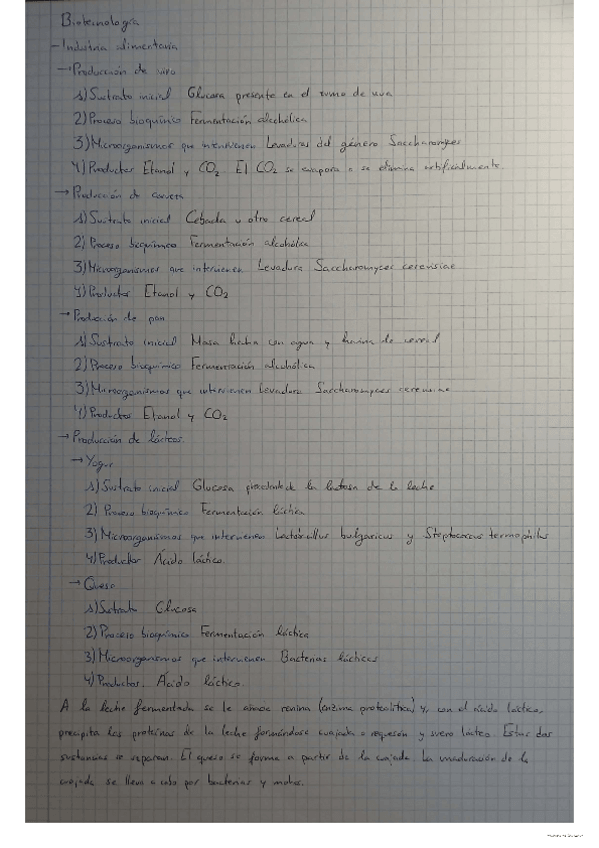 Biotecnología
- Industria alimentaria
→ Producción de vino
1) Sustrato inicial Glucosa presente en el zumo de uva
2) Proceso bioquímico Fermentación alcohólica
3) Microorganismos que intervienen Levaduras del género Saccharomyces
4) Productos Etanol y CO2. El CO2 se evapora o se elimina artificialmente.
→ Producción de cerveza
1) Sustrato inicial Cebada u otro cereal
2) Proceso bioquímico Fermentación alcohólica
3) Microorganismos que intervienen Levadura Saccharomyces cerevisiae
4) Productos Etanol y CO2
→ Producción de pan
1) Sustrato inicial Masa hecha con agua y harina de cereal
2) Proceso bioquímico Fermentación alcohólica
3) Microorganismos que intervienen Levadura Saccharomyces cerevisiae
4) Productos Etanol y CO2
→ Producción de lácteos.
→ Yogur
1) Sustrato inicial Glucosa procedente de la lactosa de la leche
2) Proceso bioquímico Fermentación láctica
3) Microorganismos que intervienen Lactobacillus bulgaricus y Streptococus termophilus
4) Productos Ácido láctico.
→ Queso
1) Sustrato Glucosa
2) Proceso bioquímico Fermentación láctica
3) Microorganismos que intervienen Bacterias lácticas
4) Productos. Ácido láctico.
A la leche fermentada se le añade renina (enzima proteolítica) y, con el ácido láctico,
precipita las proteínas de la leche formándose cuajada o requesón y suero lácteo. Estas dos
sustancias se separan. El queso se forma a partir de la cuajada. La maduración de la
cuajada se lleva a cabo por bacterias y mohos.